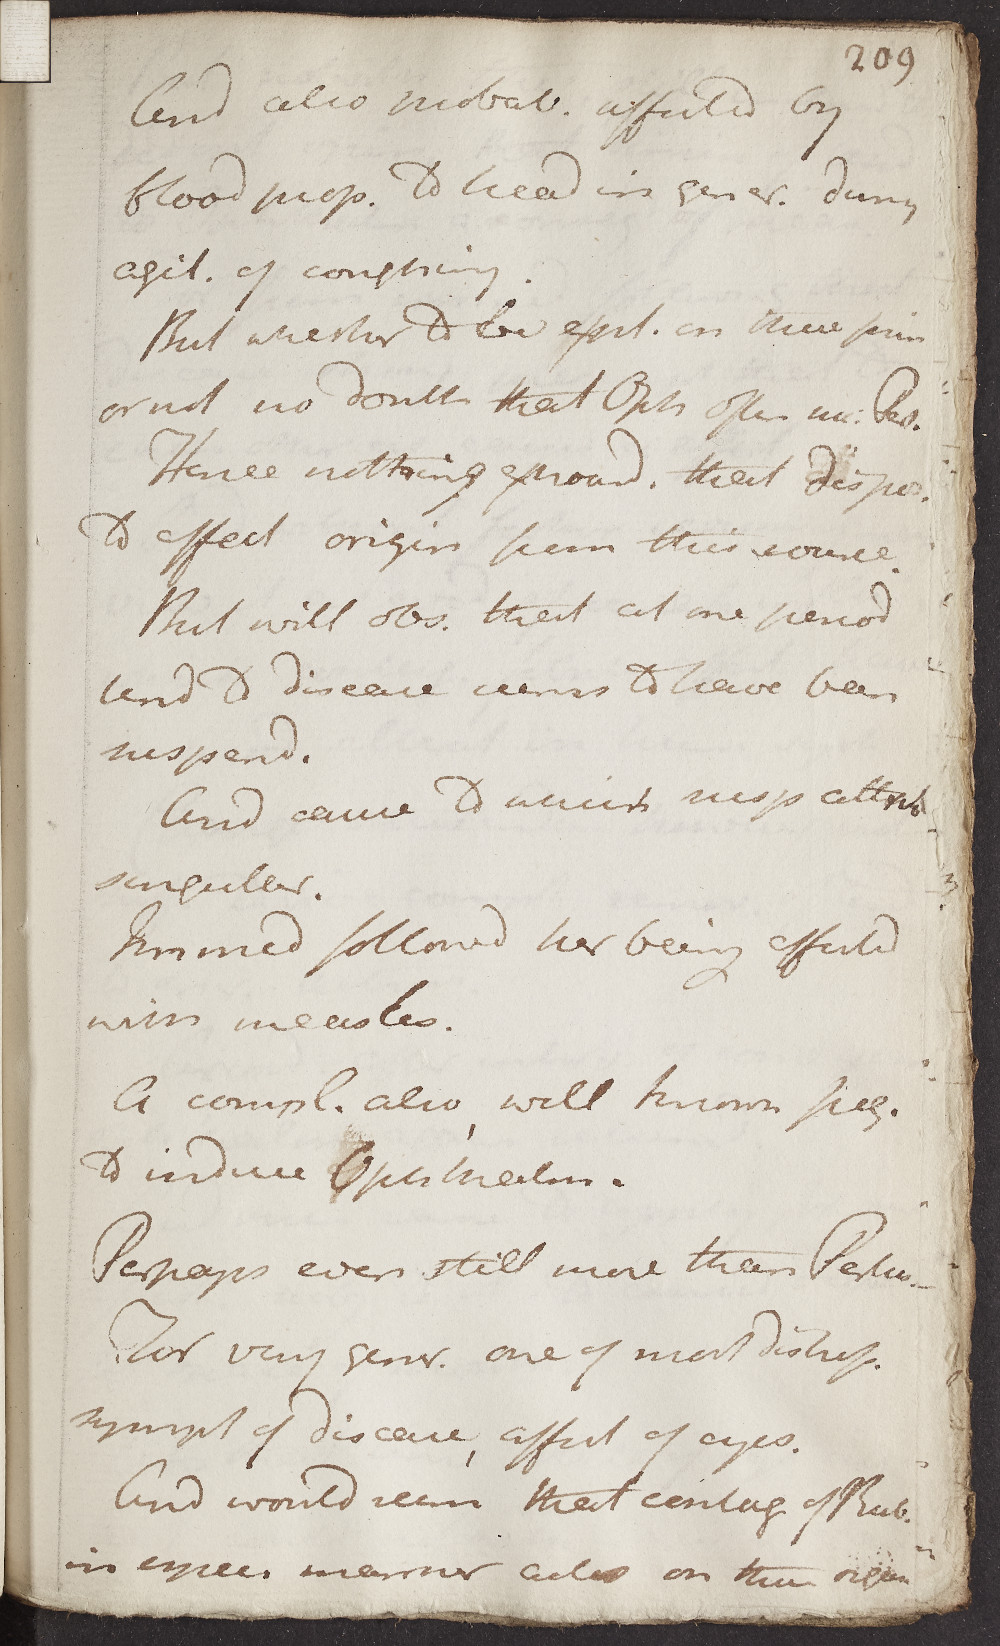 209
And also probab. affected by
blood prop. to head in gener. during
agit. of coughing.
But whether to be expl. on these prin
or not no doubt that Oph often suc: Per.
Hence nothing extraord. that dispos.
to affect origin from this source.
But will obs. that at one period
tend to disease seems to have been
suspend.
And cause to which susp attrib
singular.
Immed followed her being affected
with measles.
A compl. also, well known freq.
to induce Ophthalm.
Perhaps even still more than Pertus.
For very gener. one of most distress.
sympt of disease, affect of eyes.
And would seem that contag of Rub.
in espec. manner acts on these organ